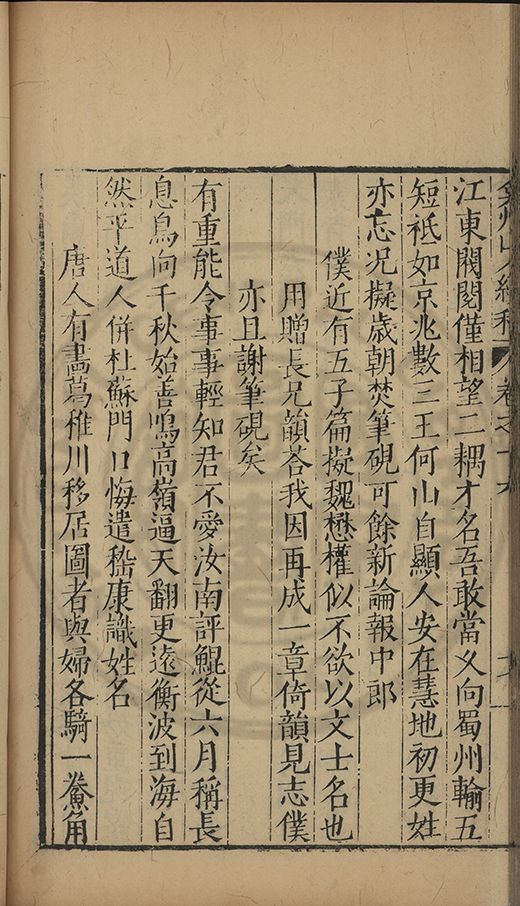 江東閥閱僅相望二耦才名吾敢當向蜀州輸五
短祗如京兆數三王何山自顯人安在慧地初更姓
亦忘况擬歳朝焚筆硯可餘新論報中郎
僕近有五子篇擬魏懋權似不欲以文士名也
用贈長兄韻荅我因再成一章倚韻見志僕
亦且謝筆硯矣
有重能令事事輕知君不愛汝南評鯤從六月稱長
息鳥向千秋始善鳴高嶺逼天翻更遠衡波到海自
然平道人併杜蘇門口悔遣嵇康識姓名
唐人有畫葛稚川移居圖者與婦各騎一角